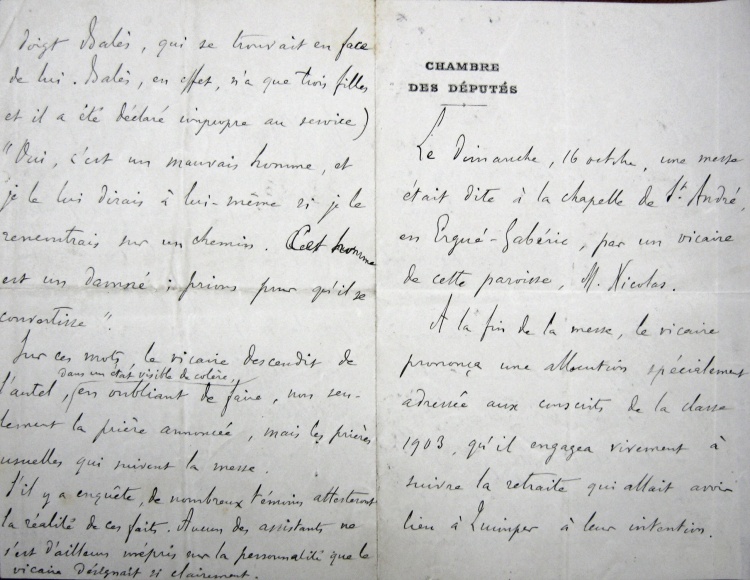 doigt Balès, qui se trouvait en face
de lui. Balès, en effet, n'a que trois filles
et il a été déclaré impropre au service)
"Oui, c'est un mauvais homme, et
je le lui dirais à lui-même si je le
rencontrais sur un chemin. Cet homme
est un damné ; prions pour qu'il se
convertisse".
Sur ces mots, le vicaire descendit de
dans un état visible de colère,
l'autel, en oubliant de faire, non seu-
lement la prière annoncée, mais les prières
usuelles qui suivent la messe.
S'il y a enquête, de nombreux témoins attesteront
la réalité de ces faits. Aucun des assistants ne
s'est d'ailleurs mépris sur la personnalité que le
vicaire désignait si clairement.
CHAMBRE
DES DÉPUTÉS
Le Dimanche, 16 octobre, une messe
était dite à la chapelle de St. André,
en Ergué-Gabéric, par un vicaire
de cette paroisse, M. Nicolas.
A la fin de la messe, le vicaire
prononça une allocution spécialement
adressée aux conscrits de la classe
1903, qu'il engagea vivement à
suivre la retraite qui allait avoir
lieu à Quimper à leur intention.